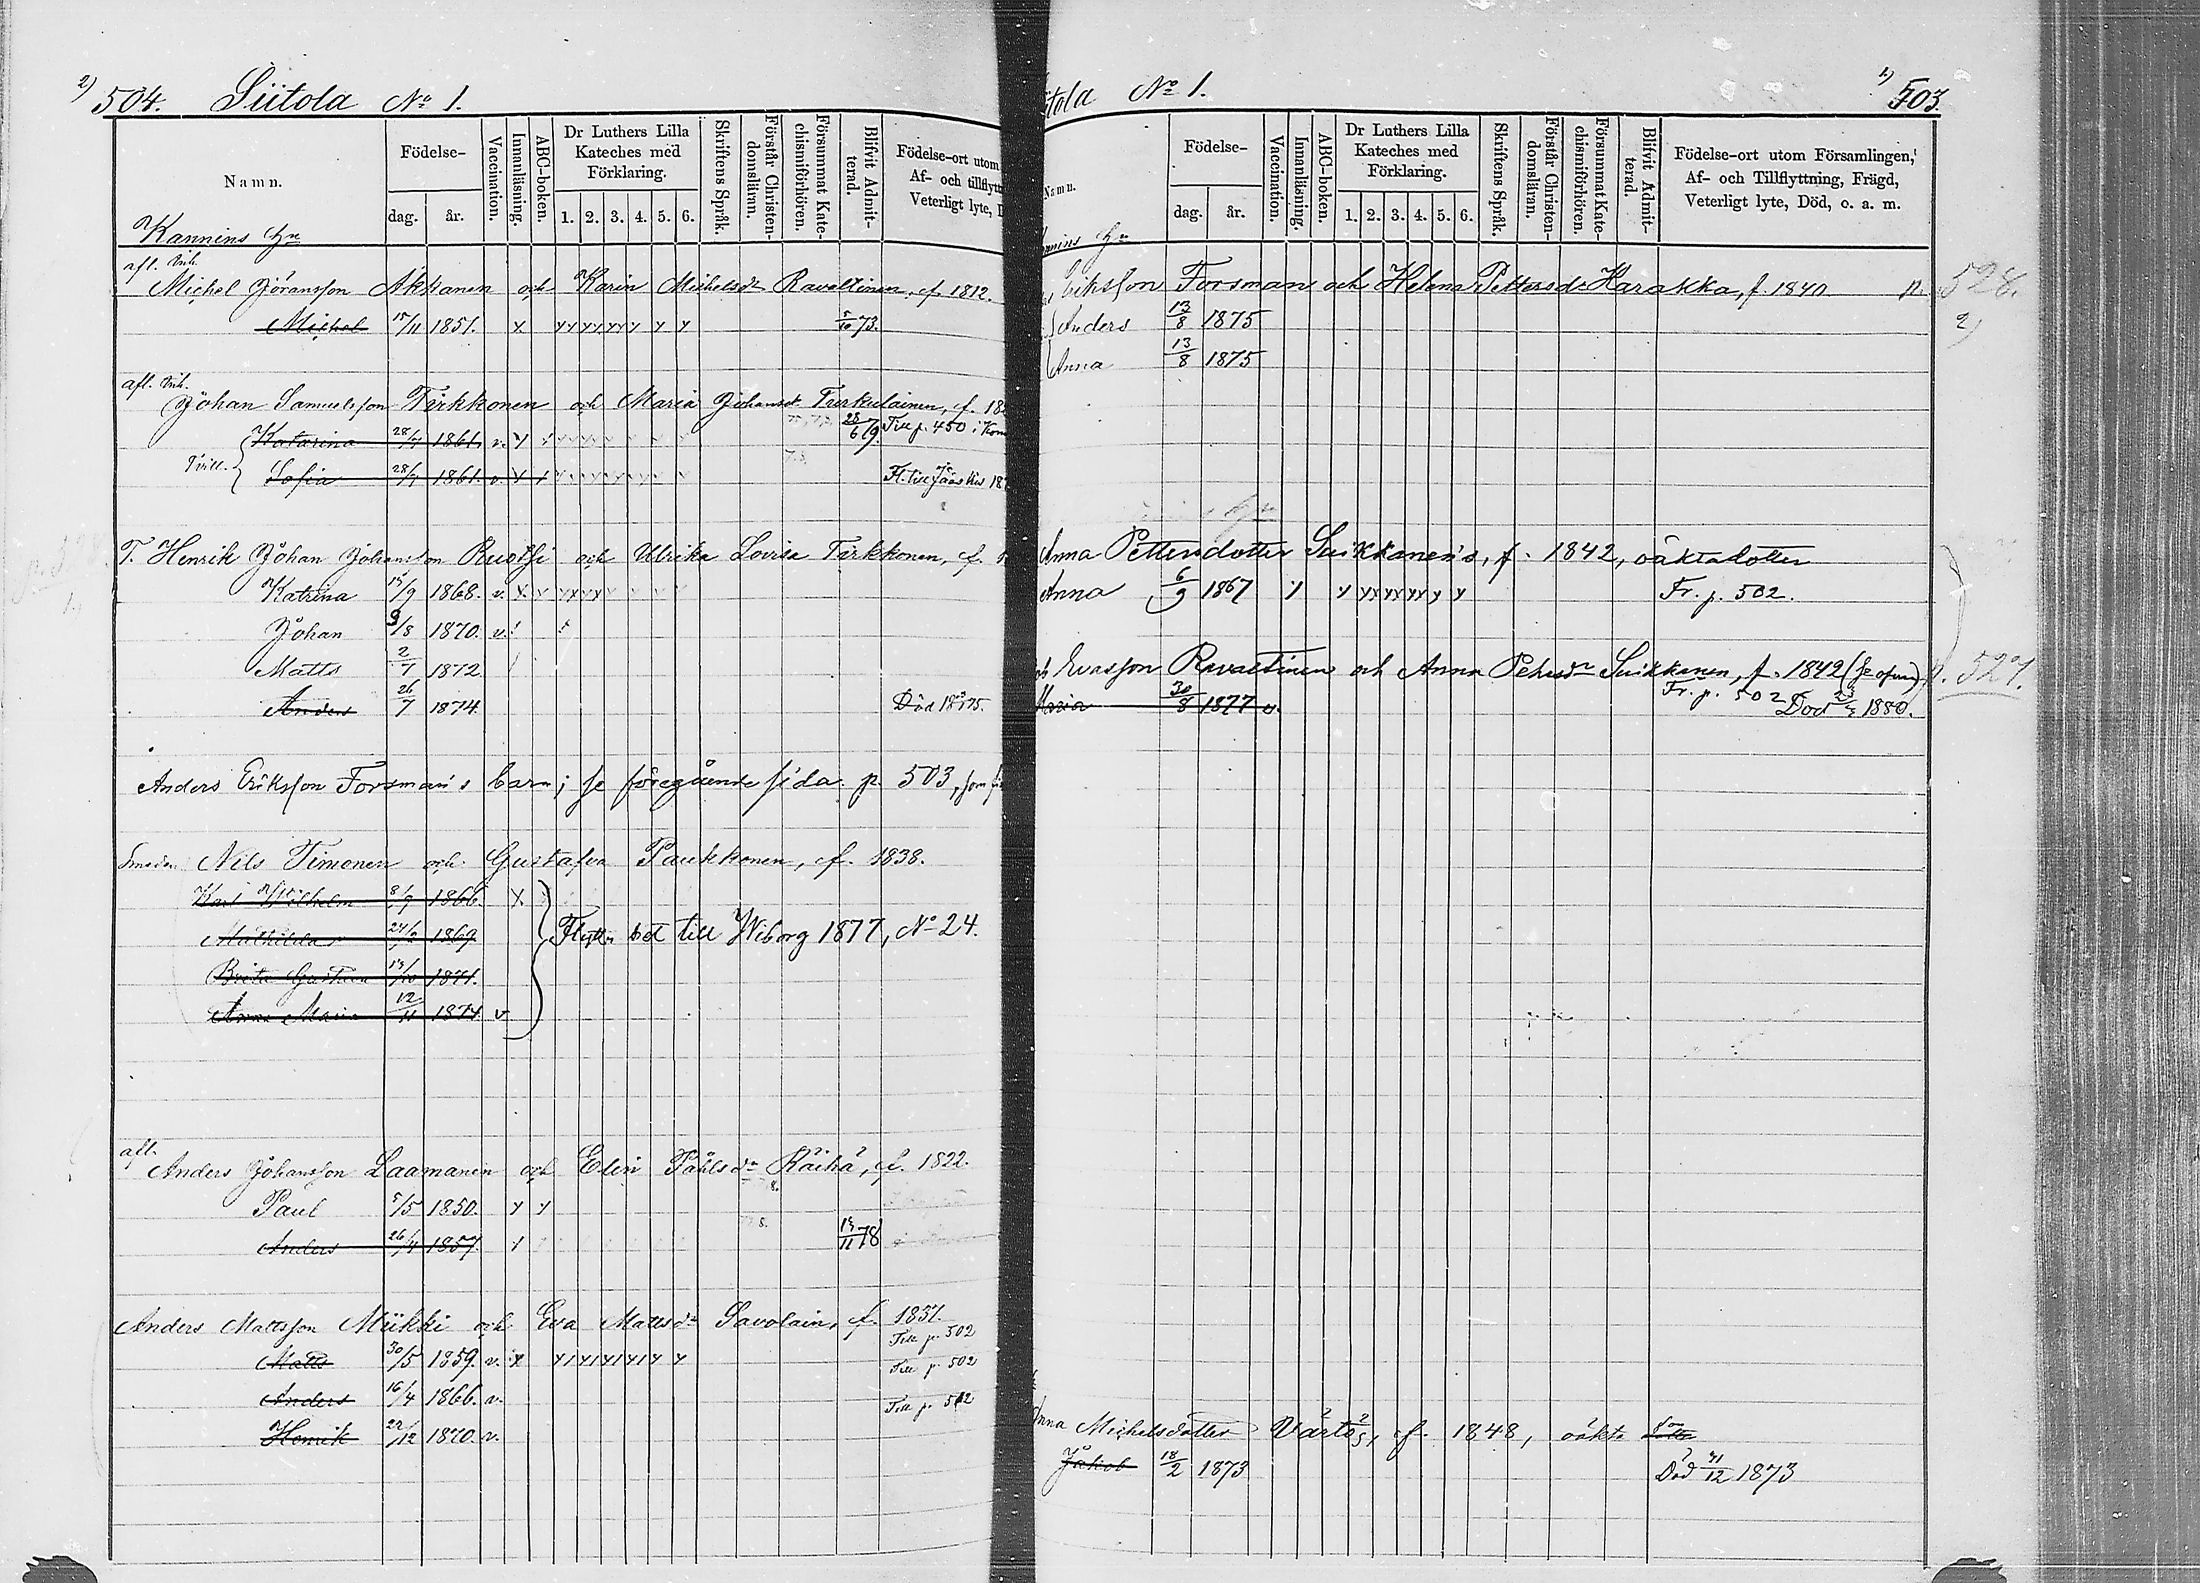 2) 504. Siitola No 1.
Namn. Födelse- dag. år. Vaccination. Innanläsning. ABC-boken. Dr Luthers Lilla Kateches med Förklaring. 1. 2. 3. 4. 5. 6. Skriftens Språk. Förstår Christendomsläran. Försummat Katechismiförhören. Blifvit Admitterad. Födelse-ort utom Af- och tillflytt Veterligt lyte, D
Kannins Hn
afl. Inh.
Michel Johansson Akkanen och Karin Michelsdr Ravattinen, f. 1812.
Michel 15/11 1851. x 5/10 73.
afl. Inh.
Johan Samuelsson Tirkkonen och Maria Johansdr Turkulainen, f. 18
Katarina 28/4 1861. v. Till p. 450 i Kon
Tvill.
Sofia 28/4 1861. v. Fl. till Jääskis 18
T. Henrik Johan Johansson Ruotsi och Ulrika Lovisa Tirkkonen, f.
Katrina 15/9 1868. v.
Johan 9/8 1870. v.
Matts 2/7 1872
Anders 26/7 1874. Död
Anders Eriksson Forsman's barn; se föregående sida p. 503, som
Smeden Nils Timonen och Gustafva Paukkonen, f. 1838.
Karl Wilhelm 8/9 1866. x
Mathilda 24/2 1869
Flytt. bet till Wiborg 1877, No 24.
Brita 13/10 1871.
Anna Maria 12/11 1874. v
afl.
Anders Johansson Laamanen och Elin Påhlsdr Räihä, f. 1822.
Paul 5/5 1850.
Anders 26/4 1857. 78
Anders Mattsson Miikki och Eva Mattsdr Savolain, f. 1837.
Till p. 502
Matts 30/5 1859. v. x Till p. 502
Anders 16/4 1866. v. Till p. 502
Henrik 22/12 1870. v.
itola No 1. 1) 503.
Namn. Födelse- dag. år. Vaccination. Innanläsning. ABC-boken. Dr Luthers Lilla Kateches med Förklaring. 1. 2. 3. 4. 5. 6. Skriftens Språk. Förstår Christendomsläran. Försummat Katechismiförhören. Blifvit Admitterad. Födelse-ort utom Församlingen, Af- och Tillflyttning, Frägd, Veterligt lyte, Död, o. a. m.
nnins Hn
Eriksson Forsman och Helena Pettersdr Harakka, f. 1840 p. 528.
Anders 13/8 1875 2)
Anna 13/8 1875
Anna Pettersdotter Suikkanen's, f. 1842, oäkta dotter
Anna 6/9 1867 Fr. p. 502.
Evasson Ravattinen och Anna Petersdr Suikkanen, f. 1842 (se ofvan) p. 527.
Fr. p. 502
Maria 30/8 1877 v. Död 1880.
Anna Michelsdotter Värtös, f. 1848, oäkta
Jakob 18/2 1873 Död 31/12 1873